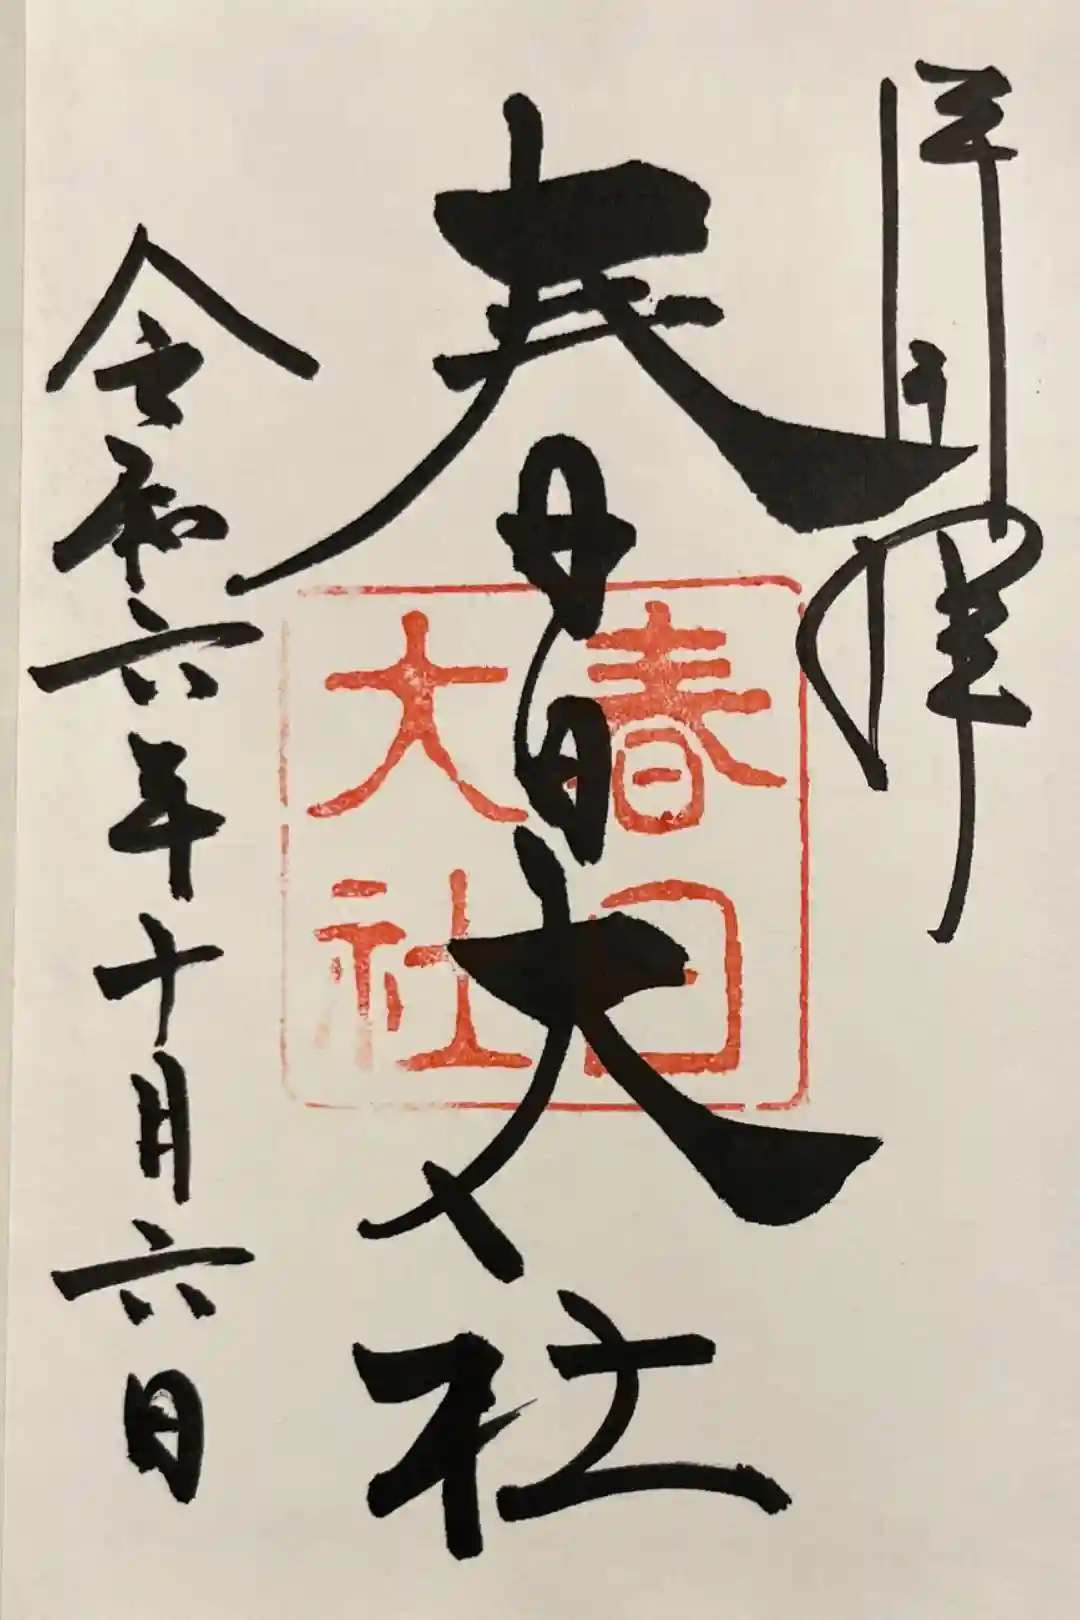 奉拝
春日大社
春日
大社
令和六年十月六日